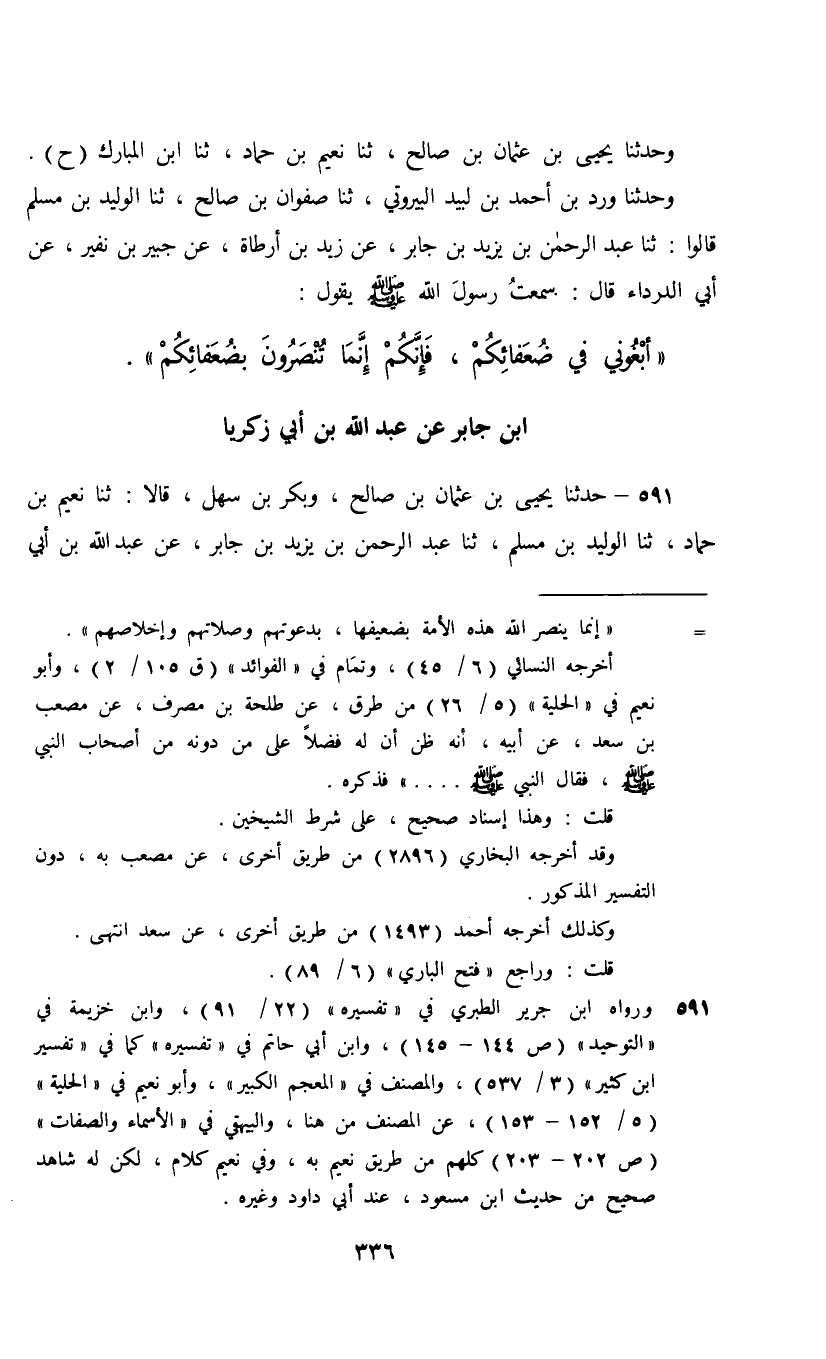 وحدثنا يحيى بن عثمان بن صالح ، ثنا نعيم بن حماد ، ثنا ابن المبارك (ح) .
وحدثنا ورد بن أحمد بن لبيد البيروتي ، ثنا صفوان بن صالح ، ثنا الوليد بن مسلم
قالوا : ثنا عبد الرحمٰن بن يزيد بن جابر ، عن زيد بن أرطاة ، عن جبير بن نفير ، عن
أبي الدرداء قال : سمعتُ رسولَ الله ﷺ يقول :
« أبْغُوني في ضُعَفائِكُمْ ، فَإنَّكُمْ إنَّمَا تُنْصَرُونَ بضُعَفائِكُمْ » .
ابن جابر عن عبد الله بن أبي زكريا
٥٩١ – حدثنا يحيى بن عثمان بن صالح ، وبكر بن سهل ، قالا : ثنا نعيم بن
حماد ، ثنا الوليد بن مسلم ، ثنا عبد الرحمن بن يزيد بن جابر ، عن عبد الله بن أبي
= « إنما ينصر الله هذه الأمة بضعيفها ، بدعوتهم وصلاتهم وإخلاصهم » .
أخرجه النسائي ( ٦ / ٤٥ ) ، وتمّام في « الفوائد » ( ق ١٠٥ / ٢ ) ، وأبو
نعيم في « الحلية » ( ٥ / ٢٦ ) من طرق ، عن طلحة بن مصرف ، عن مصعب
بن سعد ، عن أبيه ، أنه ظن أن له فضلاً على من دونه من أصحاب النبي
ﷺ ، فقال النبي ﷺ .... » فذكره .
قلت : وهذا إسناد صحيح ، على شرط الشيخين .
وقد أخرجه البخاري ( ٢٨٩٦ ) من طريق أخرى ، عن مصعب به ، دون
التفسير المذكور .
وكذلك أخرجه أحمد ( ١٤٩٣ ) من طريق أخرى ، عن سعد انتهى .
قلت : وراجع « فتح الباري » ( ٦ / ٨٩ ) .
٥٩١ ورواه ابن جرير الطبري في « تفسيره » ( ٢٢ / ٩١ ) ، وابن خزيمة في
« التوحيد » ( ص ١٤٤ – ١٤٥ ) ، وابن أبي حاتم في « تفسيره » كما في « تفسير
ابن كثير » ( ٣ / ٥٣٧ ) ، والمصنف في « المعجم الكبير » ، وأبو نعيم في « الحلية »
( ٥ / ١٥٢ – ١٥٣ ) ، عن المصنف من هنا ، والبيهقي في « الأسماء والصفات »
( ص ٢٠٢ – ٢٠٣ ) كلهم من طريق نعيم به ، وفي نعيم كلام ، لكن له شاهد
صحيح من حديث ابن مسعود ، عند أبي داود وغيره .
٣٣٦